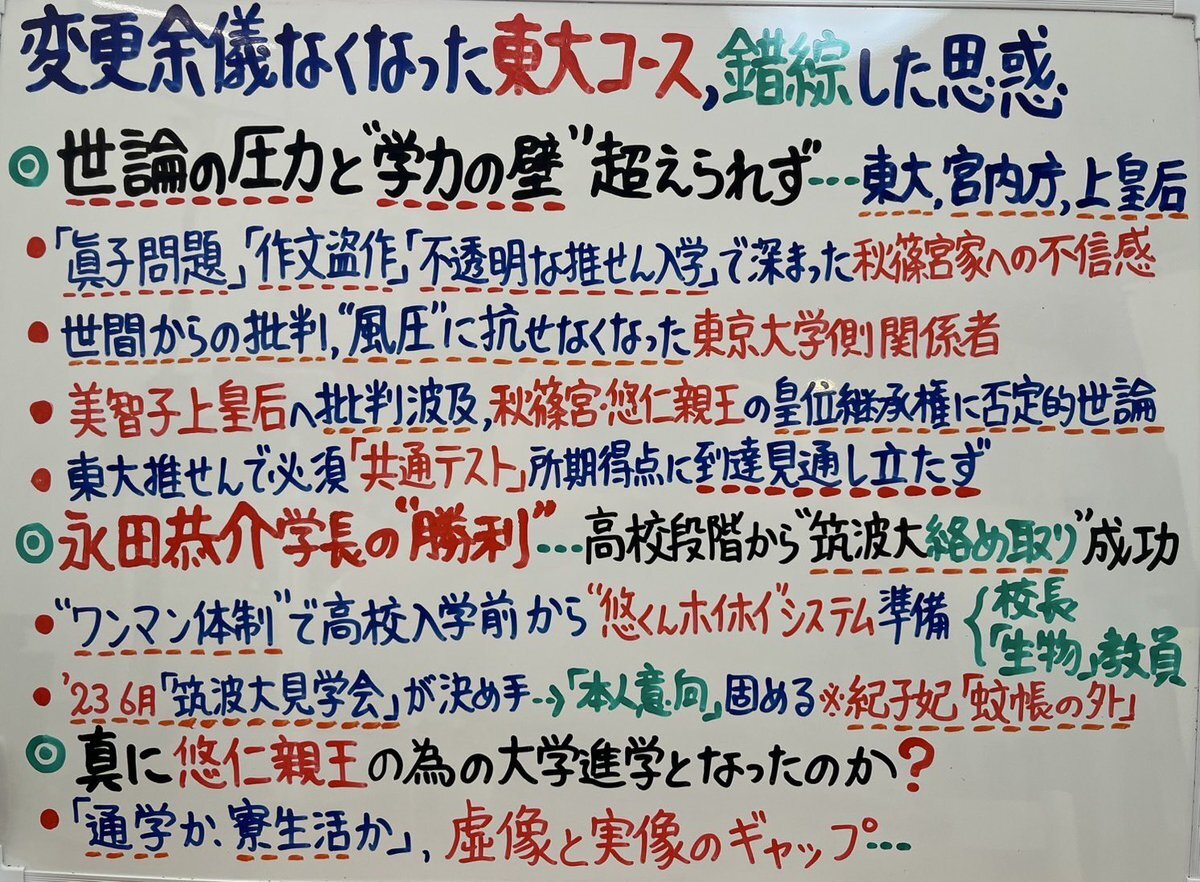 変更余儀なくなった東大コース,錯綜した思惑
◎世論の圧力と"学力の壁"超えられず…東大,宮内庁,上皇后
●「眞子問題」「作文盗作」「不透明な推せん入学」で深まった秋篠宮家への不信感
●世間からの批判,"風圧"に抗せなくなった東京大学側関係者
●美智子上皇后へ批判波及,秋篠宮・悠仁親王の皇位継承権に否定的世論
●東大推せんで必須「共通テスト」所期得点に到達見通し立たず
◎永田恭介学長の"勝利"…高校段階から"筑波大絡め取り"成功
●"ワンマン体制"で高校入学前から"悠くんホイホイ"システム準備{校長
「生物」教員
●'23 6月「筑波大見学会」が決め手-->「本人意向」固める※紀子妃「蚊帳の外」
◎真に悠仁親王の為の大学進学となったのか?
●「通学か、寮生活か」,虚像と実像のギャップ…